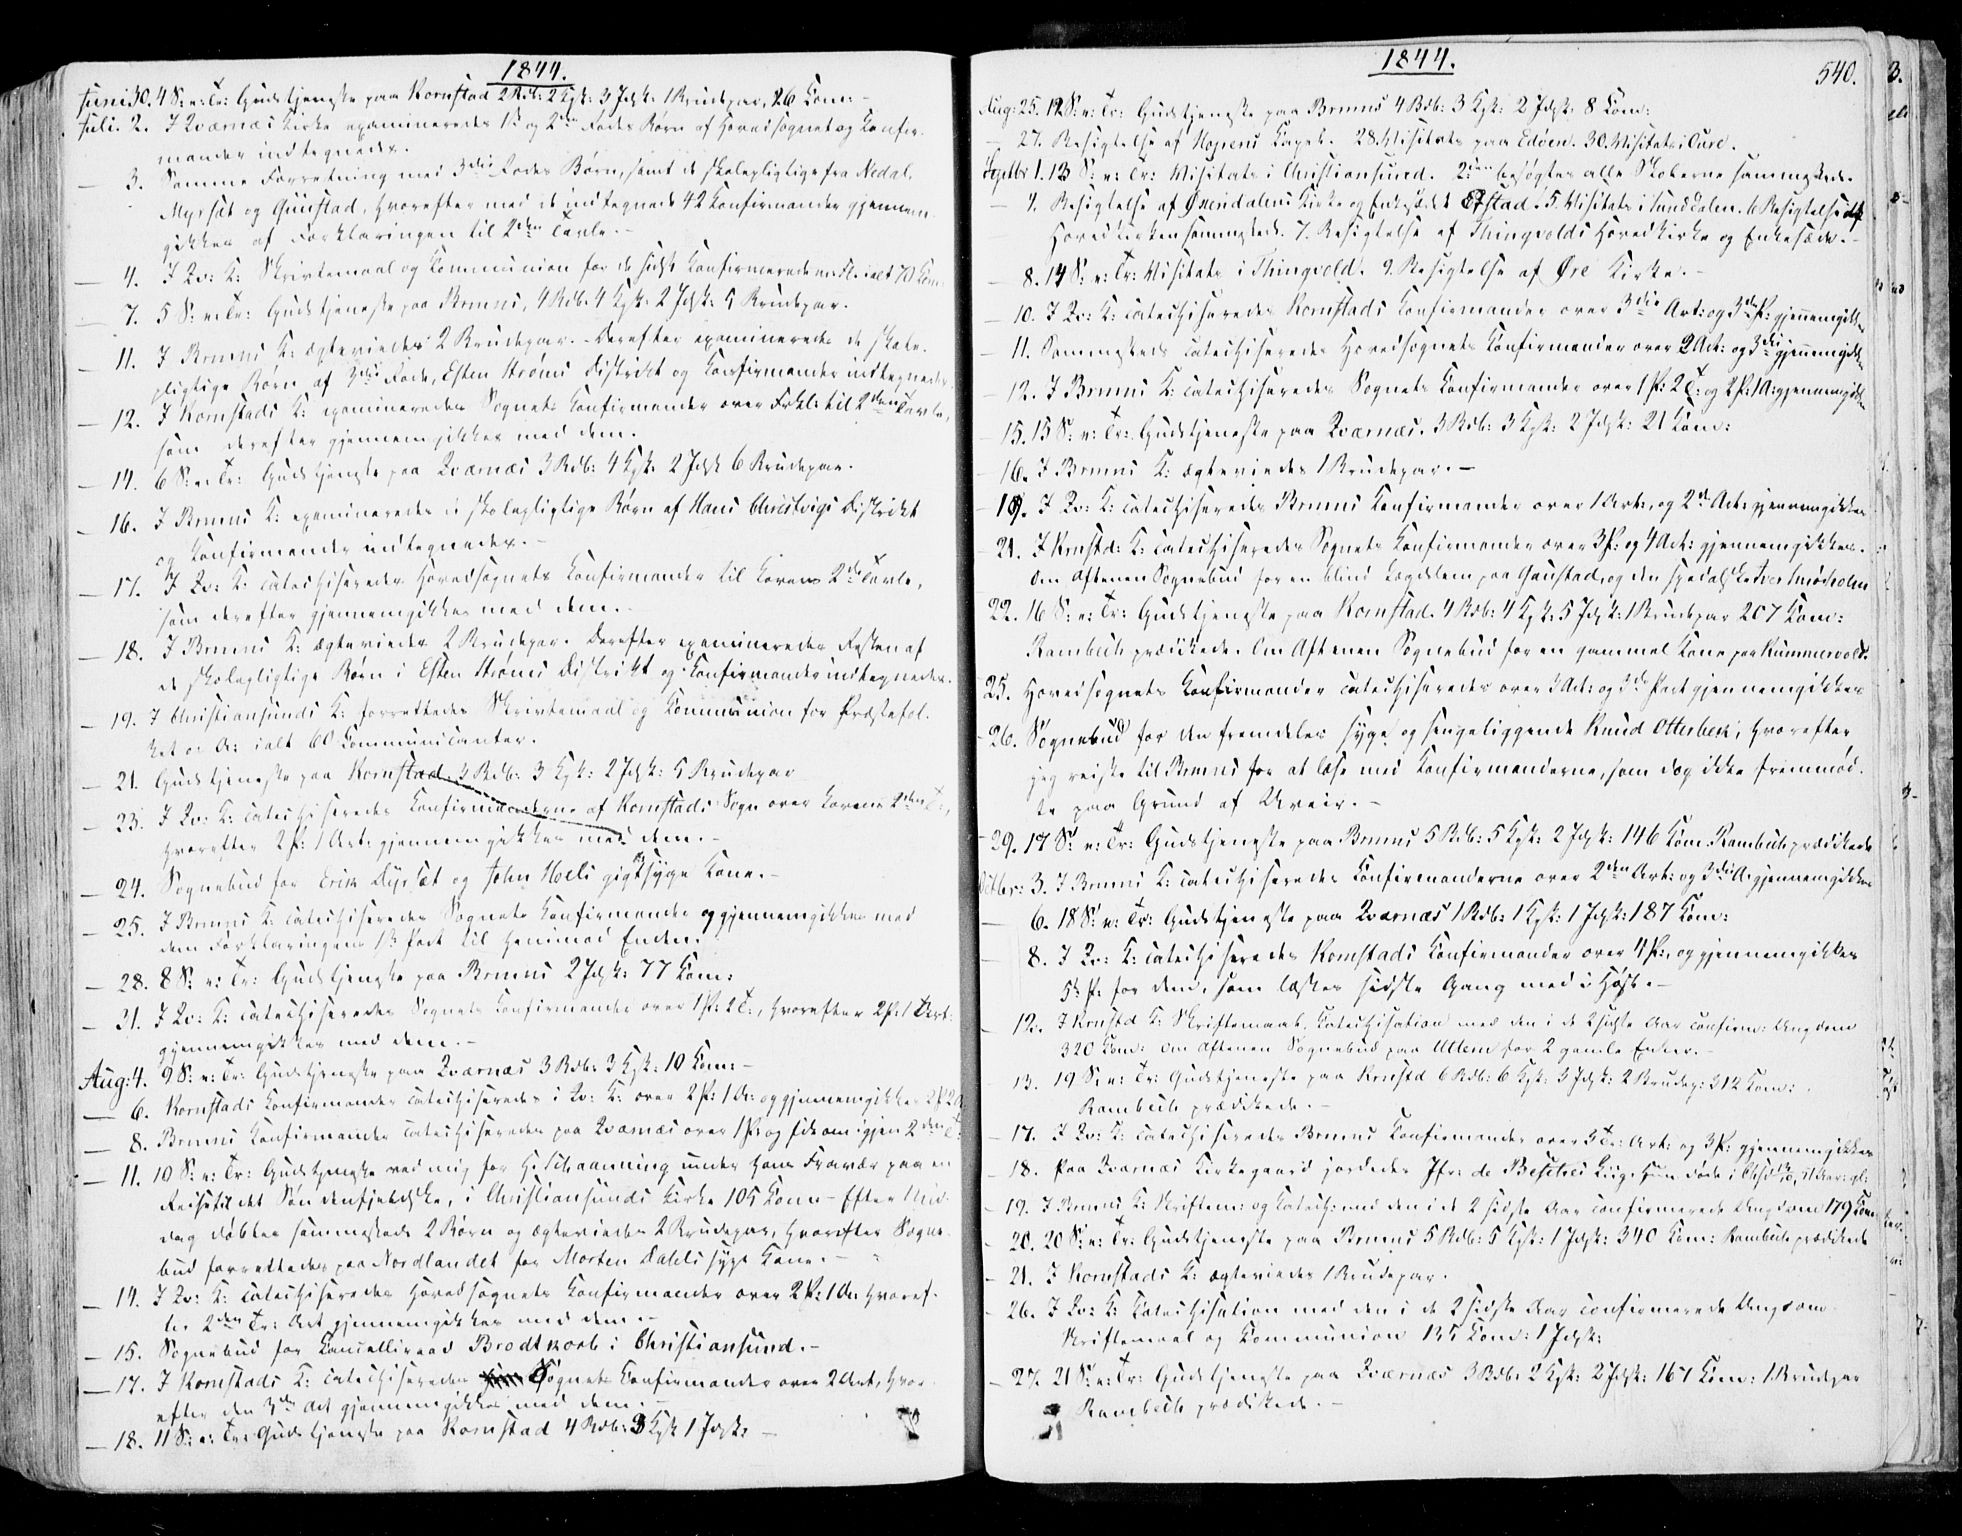 1844.
Juni 30. 4 S: e: Tr: Gudstjeneste paa Kornstad 2 Ædb: 2 Kgk: 3 Jdsk: 1 Brudepar, 26 Com: -
Juli. 2. I Qværnæs Kirke examineredes 1ste og 2den Rodes Børn af Hovedsognet og Confir-
mander indtegnedes.
- 3. Samme Forretning med 3die Rodes Børn, samt de skolepligtige fra Nedal,
Myrsæt og Gunstad, hvorefter med de indtegnede 42 Confirmander gjennem-
gikkes af Forklaringen til 2den Tavle. -
- 4. I Qv: K: Skriftemaal og Communion for de sidst Confirmerede m: Fl: ialt 70 Com:
- 7. 5 S: e: Tr: Gudstjeneste paa Bremsnes, 4 Ædb: 4 Kgk: 2 Jdsk: 5 Brudepar.
- 11. I Bremsnes K: ægteviedes 2 Brudepar. - Derefter examineredes de skole-
pligtige Børn af 3die Rode, Esten Strøms Distrikt og Confirmander indtegnedes.
- 12. I Kornstads K: examineredes Sognets Confirmander over Forkl: til 2den Tavle,
som derefter gjennemgikkes med dem.
- 14. 6 S: e: Tr: Gudstjeneste paa Qværnæs 3 Ædb: 4 Kgk: 2 Jdsk 6 Brudepar.
- 16. I Bremsnes K: examineredes de skolepligtige Børn af Hans Christvigs Distrikt
og Confirmander indtegnedes. -
- 17. I Qv: K: catechiseredes Hovedsognets Confirmander til Lovens 2den Tavle,
som derefter gjennemgikkes med dem. -
- 18. I Bremsnes K: ægteviedes 2 Brudepar. Derefter examineredes Resten af
de skolepligtige Børn i Esten Strøms Distrikt og Confirmander indtegnedes.
- 19. I Christiansunds K: forrettedes Skriftemaal og Communion for Præstefol-
ket o: A: ialt 60 Communicanter.
- 21. Gudstjeneste paa Kornstad. 3 Ædb: 3 Kgk: 2 Jdsk: 5 Brudepar
- 23. I Qv: K: catechiseredes Confirmanderne af Kornstads Sogn over Lovens 2den T:,
hvorefter 2 P: 1 Art: gjennemgikkes med dem. -
- 24. Sognebud for Erik Dyrsæt og John Hoels gigtsyge Kone. -
- 25. I Bremsnes K: catechiseredes Sognets Confirmander og gjennemgikkes med
dem Forklaringens 1ste Part til henimod Enden.
- 28. 8 S: e: Tr: Gudstjeneste paa Bremsnes 2 Jdsk: 77 Com:
- 31. I Qv: K: catechiseredes Sognets Confirmander over 1 P: 2 T:, hvorefter 2 P: 1 Art:
gjennemgikkes med dem. -
Aug: 4. 9 S: e: Tr: Gudstjeneste paa Qværnæs 3 Ædb: 3 Kgk: 10 Com: -
- 6. Kornstads Confirmander catechiseredes i Qv: K: over 2 P: 1 A: og gjennemgikkes 2 P 2 A:
- 8. Bremsnes Confirmander catechiseredes paa Qværnæs over 1 P: og frem igjen 2den T:
- 11. 10 S: e: Tr: Gudstjeneste ved mig for H: Schaanning under hans Fravær paa en
Reise til det Søndenfjeldske, i Christiansunds Kirke 105 Com - Efter Mid-
dag døbtes sammesteds 2 Børn og ægteviedes 2 Brudepar, hvorefter Sogne-
bud forrettedes paa Nordlandet for Morten Dahls syge Kone. -
- 14. I Qv: K: catechiseredes Hovedsognets Confirmander over 2 P: 1 A: hvoref-
ter 2den Tr: Art gjennemgikkes med dem. -
- 15. Sognebud for Cancelliraad Brodtkorb i Christiansund. -
- 17. I Kornstads K: catechiseredes Sognets Confirmander over 2 Art, hvor-
efter den 3die Art gjennemgikkes med dem. -
- 18. 11 S: e: Tr: Gudstjeneste paa Kornstad 4 Ædb: 3 Kgk 1 Jdsk: -
1844.
540.
Aug: 25. 12 S: e: Tr: Gudstjeneste paa Bremsnes 4 Ædb: 3 Kgk: 2 Jdsk: 8 Com:
- 27. Besigtelse af Hopens Capel. 28. Visitats paa Edøen. 30. Visitats i Aure.
Septbr 1. 13 S: e: Tr: Visitats i Christiansund. 2den besøgtes alle Skolerne sammesteds.
- 4. Besigtelse af Øxendalens Kirke og Enkesædet Efstad. 5. Visitats i Sunddalen. 6 Besigtelse af
Hovedkirken sammesteds. 7. Besigtelse af Thingvolds Hovedkirke og Enkesæde. -
- 8. 14 S: e: Tr: Visitats i Thingvold. 9. Besigtelse af Øre Kirke. -
- 10. I Qv: K: catechiseredes Kornstads Confirmander over 3die Art: og 3die P: gjennemgikkes
- 11. Sammesteds catechiseredes Hovedsognets Confirmander over 2 Art: og 3die gjennemgikkes
- 12. I Bremsnes K: catechiseredes Sognets Confirmander over 1 P: 2 T: og 2 P: 1 A: gjennemgikkes
- 15. 15 S: e: Tr: Gudstjeneste paa Qværnæs. 3 Ædb: 3 Kgk: 2 Jdsk: 21 Com:
- 16. I Bremsnes K: ægteviedes 1 Brudepar. -
- 19. I Qv: K: catechiseredes Bremsnes Confirmander over 1 Art:, og 2den Art: gjennemgikkes
- 21. I Krnstd: K: catechiseredes Sognets Confirmander over 3 P: og 4 Art: gjennemgikkes.
Om Aftenen Sognebud for en blind Lægdslem paa Gaustad, og den spedalske Iver Smøsholm
- 22. 16 S: e: Tr: Gudstjeneste paa Kornstad. 4 Ædb: 4 Kgk: 5 Jdsk: 1 Brudepar 207 Com:
Rambech prædikede. Om Aftenen Sognebud for en gammel Kone paa Kummervold.
25. Hovedsognets Confirmander catechiseredes over 3 Art: og 3die Part gjennemgikkes
- 26. Sognebud for den fremdeles syge og sengeliggende Knud Otterbech, hvorefter
jeg reiste til Bremsnes for at læse med Confirmanderne, som dog ikke fremmød-
te paa Grund af Uveir. -
- 29. 17 S: e: Tr: Gudstjeneste paa Bremsnes 5 Ædb: 5 Kgk: 2 Jdsk: 146 Com. Rambech prædikede
Octbr: 3. I Bremsnes K: catechiseredes Confirmanderne over 2den Art: og 3die A: gjennemgikkes
- 6. 18 S: e: Tr: Gudstjeneste paa Qværnæs 1 Ædb: 1 Kgk: 1 Jdsk: 187 Com:
- 8. I Qv: K: catechiseredes Kornstads Confirmander over 4 P:, og gjennemgikkes
5te P: for dem, som læstes sidste Gang med i Høst. -
- 12. I Krnstd K: Skriftemaal, Catechisation med den i de 2 sidste Aar confirm: Ungdom
320 Com: om Aftenen Sognebud paa Uttem for 2 gamle Enker. -
- 13. 19 S: e: Tr: Gudstjeneste paa Krnstd 6 Ædb: 6 Kgk: 3 Jdsk: 2 Brudep: 312 Com:
Rambech prædikede. -
- 17. I Qv: K: catechiseredes Bremsnes Confirmander over 3 Tr: Art: og 3 P: gjennemgikkes
- 18. Paa Qværnæs Kirkegaard jordedes Jfr: de Besches Lig.
- 19. I Bremsnes K: Skriftem: og Catech: med den i de 2 sidste Aar confirmerede Ungdom 179 Com
- 20. 20 S: e: Tr: Gudstjeneste paa Bremsnes 5 Ædb: 5 Kgk: 1 Jdsk: 340 Com: Rambech prædikede
- 21. I Kornstads K: ægteviedes 1 Brudepar.
- 26. I Qv: K: Catechisation med den i de 2 sidste Aar confirmerede Ungdom
Skriftemaal og Communion 135 Com: 1 Jdsk:
- 27. 21 S: e: Tr: Gudstjeneste paa Qværnæs 3 Ædb: 2 Kgk: 2 Jdsk: 167 Com: 1 Brudepar
Rambech prædikede. -